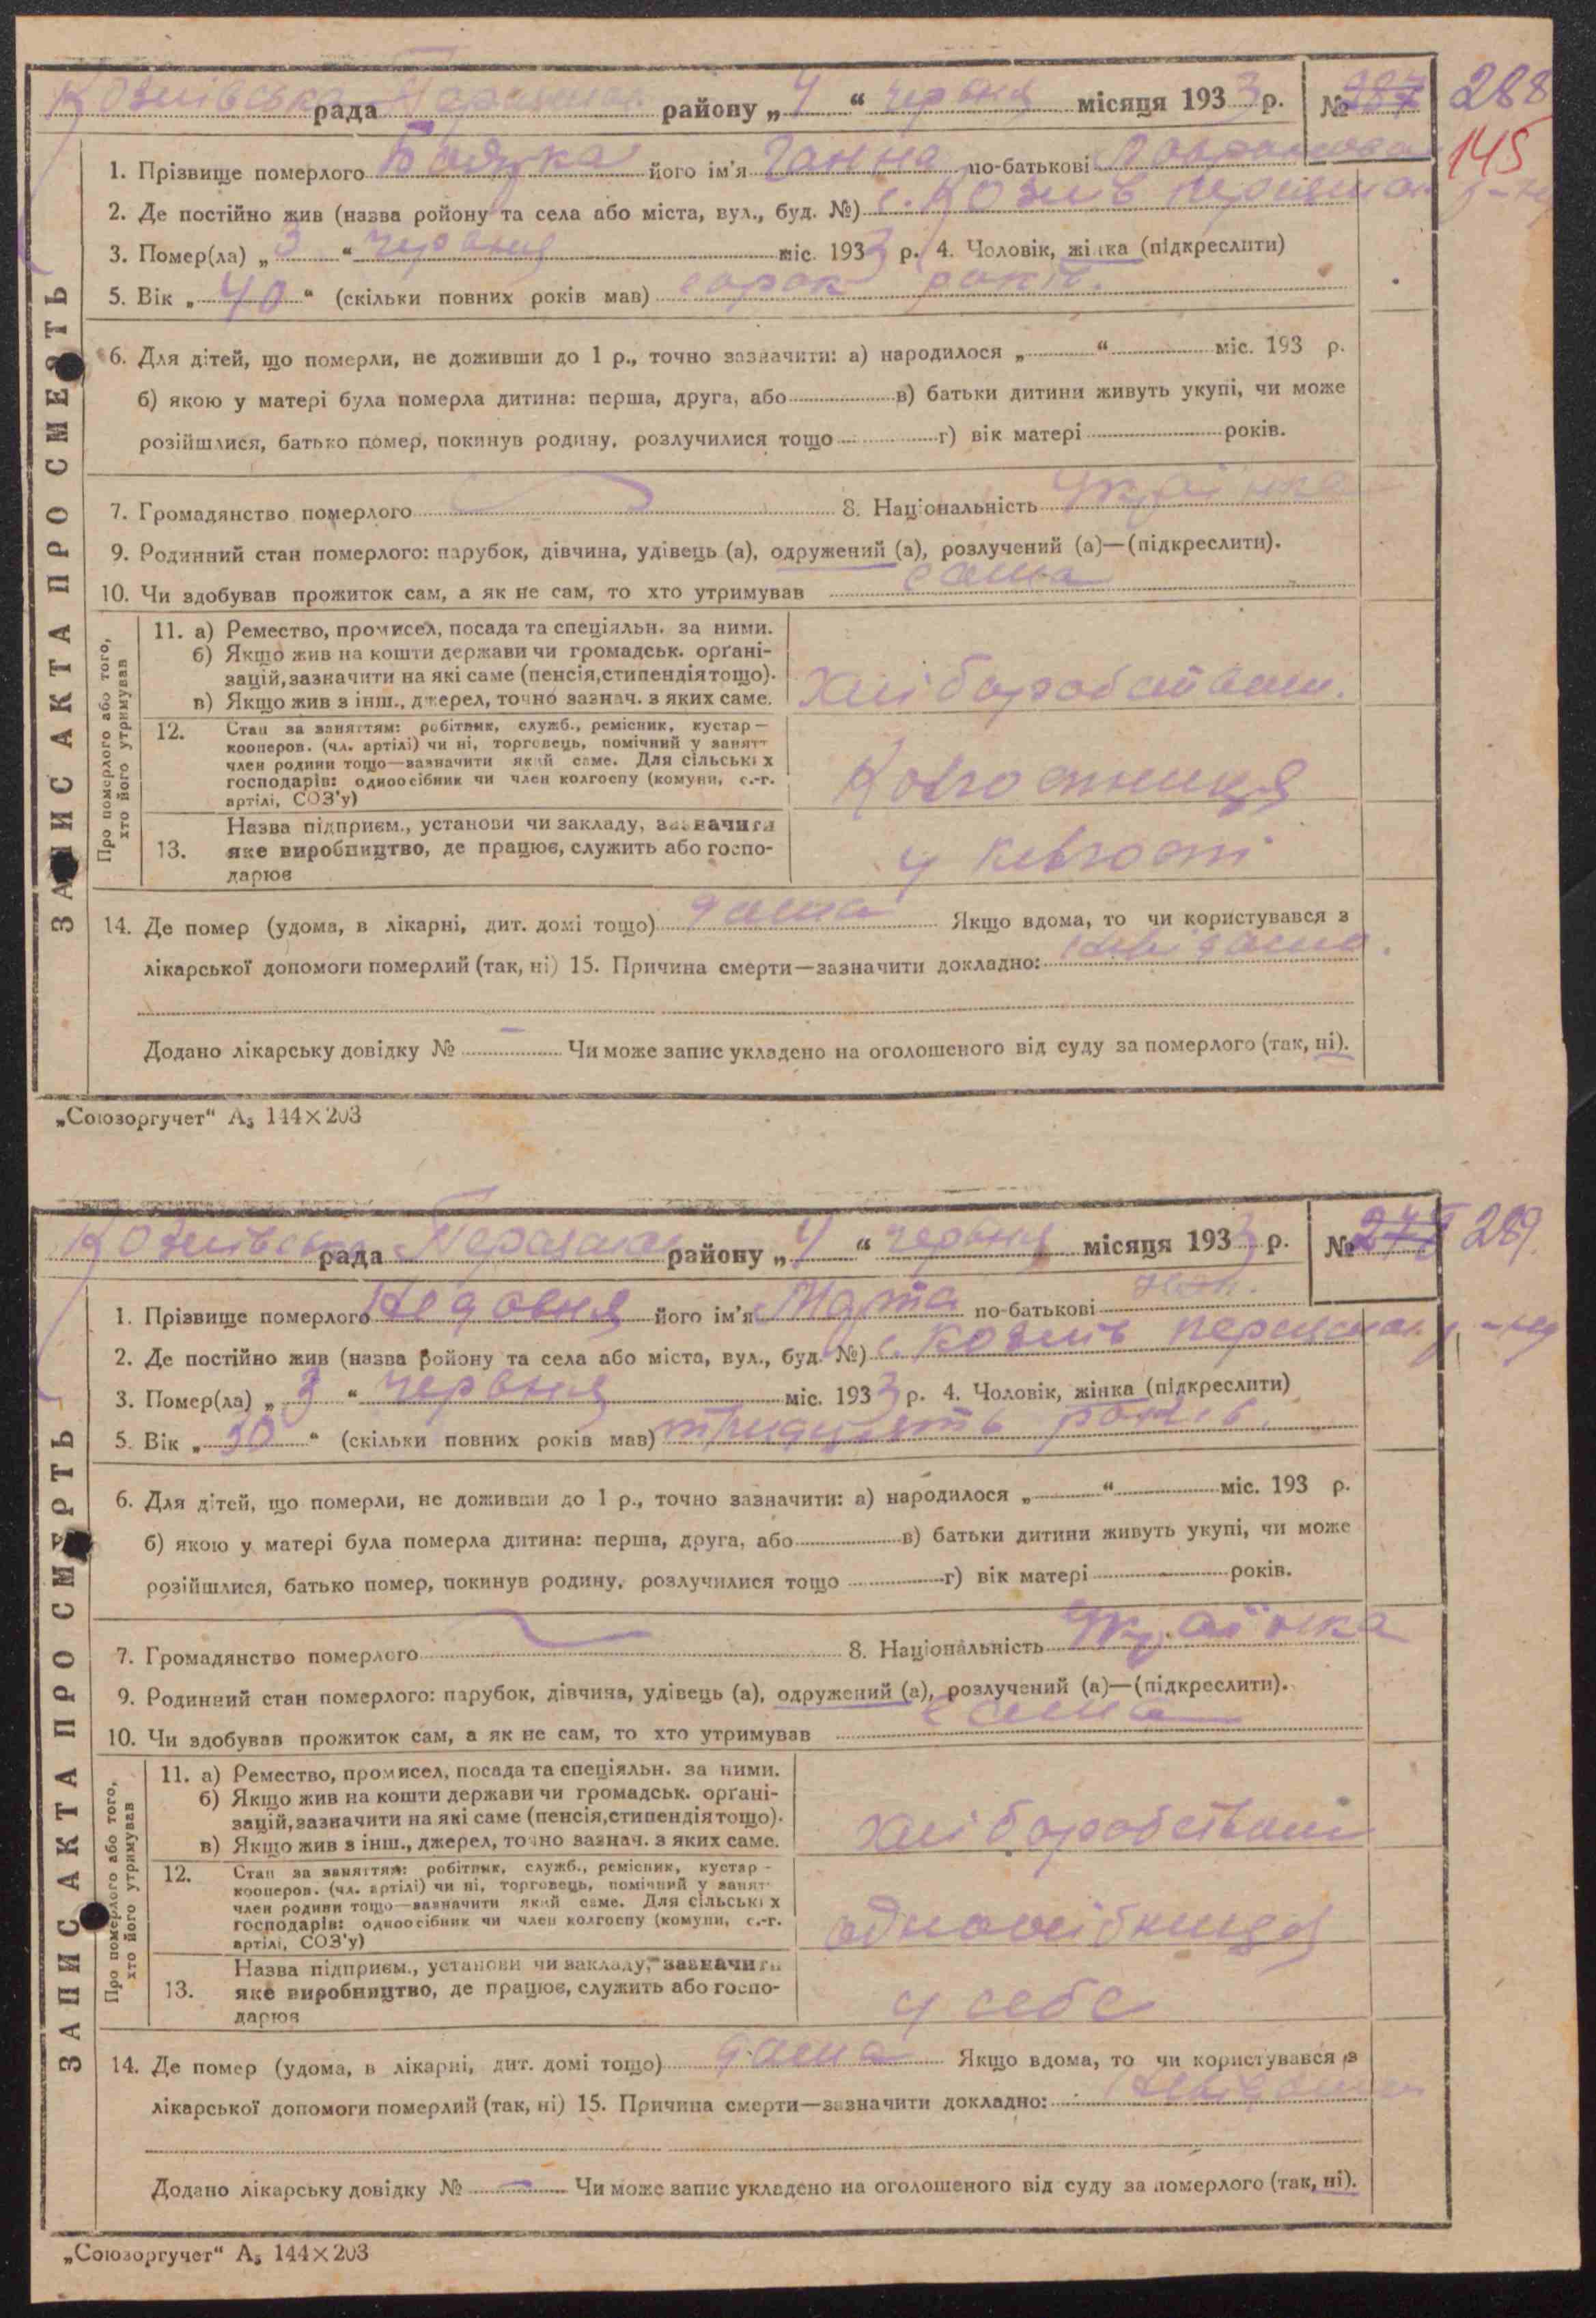 Козлівська рада района району „ 4 “ червня місяця 1933 р. № 287 288
145
1. Прізвище померлого його ім'я Ганна по-батькові
2. Де постійно жив (назва ройону та села або міста, вул., буд. №) с. Козлів р-ну
3. Помер(ла) „ 3 “ червня міс. 1933 р. 4. Чоловік, жінка (підкреслити)
5. Вік „ 40 “ (скільки повних років мав) сорок років.
6. Для дітей, що померли, не доживши до 1 р., точно зазначити: а) народилося „ “ міс. 193 р.
б) якою у матері була померла дитина: перша, друга, або в) батьки дитини живуть укупі, чи може
розійшлися, батько помер, покинув родину, розлучилися тощо г) вік матері років.
7. Громадянство померлого 8. Національність Українка
9. Родинний стан померлого: парубок, дівчина, удівець (а), одружений (а), розлучений (а)—(підкреслити).
10. Чи здобував прожиток сам, а як не сам, то хто утримував сама
ЗАПИС АКТА ПРО СМЕРТЬ
Про померлого або того, хто його утримував
11. а) Ремество, промисел, посада та спеціяльн. за ними.
б) Якщо жив на кошти держави чи громадськ. орґані-
зацій, зазначити на які саме (пенсія, стипендія тощо).
в) Якщо жив з інш., джерел, точно зазнач. з яких саме.
хліборобством.
12. Стан за заняттям: робітник, служб., ремісник, кустар —
кооперов. (чл. артілі) чи ні, торговець, помічний у занятт
член родини тощо—зазначити який саме. Для сільських
господарів: одноосібник чи член колгоспу (комуни, с.-г.
артілі, СОЗ'у)
Колгоспниця
13. Назва підприєм., установи чи закладу, зазначити
яке виробництво, де працює, служить або госпо-
дарює
у колгоспі
14. Де помер (удома, в лікарні, дит. домі тощо) дома Якщо вдома, то чи користувався з
лікарської допомоги померлий (так, ні) 15. Причина смерти—зазначити докладно: невідомо.
Додано лікарську довідку № — Чи може запис укладено на оголошеного від суду за померлого (так, ні).
„Союзоргучет“ А₅ 144×203
Козлівська рада району „ 4 “ червня місяця 1933 р. № 289.
1. Прізвище померлого його ім'я Марта по-батькові
2. Де постійно жив (назва ройону та села або міста, вул., буд. №) с. Козлів
3. Помер(ла) „ 3 “ червня міс. 1933 р. 4. Чоловік, жінка (підкреслити)
5. Вік „ 30 “ (скільки повних років мав) тридцять років.
6. Для дітей, що померли, не доживши до 1 р., точно зазначити: а) народилося „ “ міс. 193 р.
б) якою у матері була померла дитина: перша, друга, або в) батьки дитини живуть укупі, чи може
розійшлися, батько помер, покинув родину, розлучилися тощо г) вік матері років.
7. Громадянство померлого 8. Національність Українка
9. Родинний стан померлого: парубок, дівчина, удівець (а), одружений (а), розлучений (а)—(підкреслити).
10. Чи здобував прожиток сам, а як не сам, то хто утримував сама
ЗАПИС АКТА ПРО СМЕРТЬ
Про померлого або того, хто його утримував
11. а) Ремество, промисел, посада та спеціяльн. за ними.
б) Якщо жив на кошти держави чи громадськ. орґані-
зацій, зазначити на які саме (пенсія, стипендія тощо).
в) Якщо жив з інш., джерел, точно зазнач. з яких саме.
хліборобством
12. Стан за заняттям: робітник, служб., ремісник, кустар -
кооперов. (чл. артілі) чи ні, торговець, помічний у занят
член родини тощо—зазначити який саме. Для сільських
господарів: одноосібник чи член колгоспу (комуни, с.-г.
артілі, СОЗ'у)
одноосібниця
13. Назва підприєм., установи чи закладу, зазначити
яке виробництво, де працює, служить або госпо-
дарює
у себе
14. Де помер (удома, в лікарні, дит. домі тощо) дома Якщо вдома, то чи користувався з
лікарської допомоги померлий (так, ні) 15. Причина смерти—зазначити докладно: невідомо
Додано лікарську довідку № — Чи може запис укладено на оголошеного від суду за померлого (так, ні).
„Союзоргучет“ А₅ 144×203